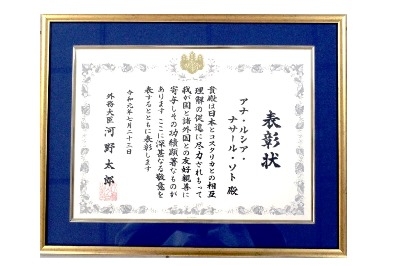 表彰状
アナ・ルシア・
ナサール・ソト 殿
貴殿は日本とコスタリカとの相互
理解の促進に尽力されもって
我が国と諸外国との友好親善に
寄与しその功績顕著なものが
あります ここに深甚なる敬意を
表するとともに表彰します
令和元年七月二十三日
外務大臣 河野太郎